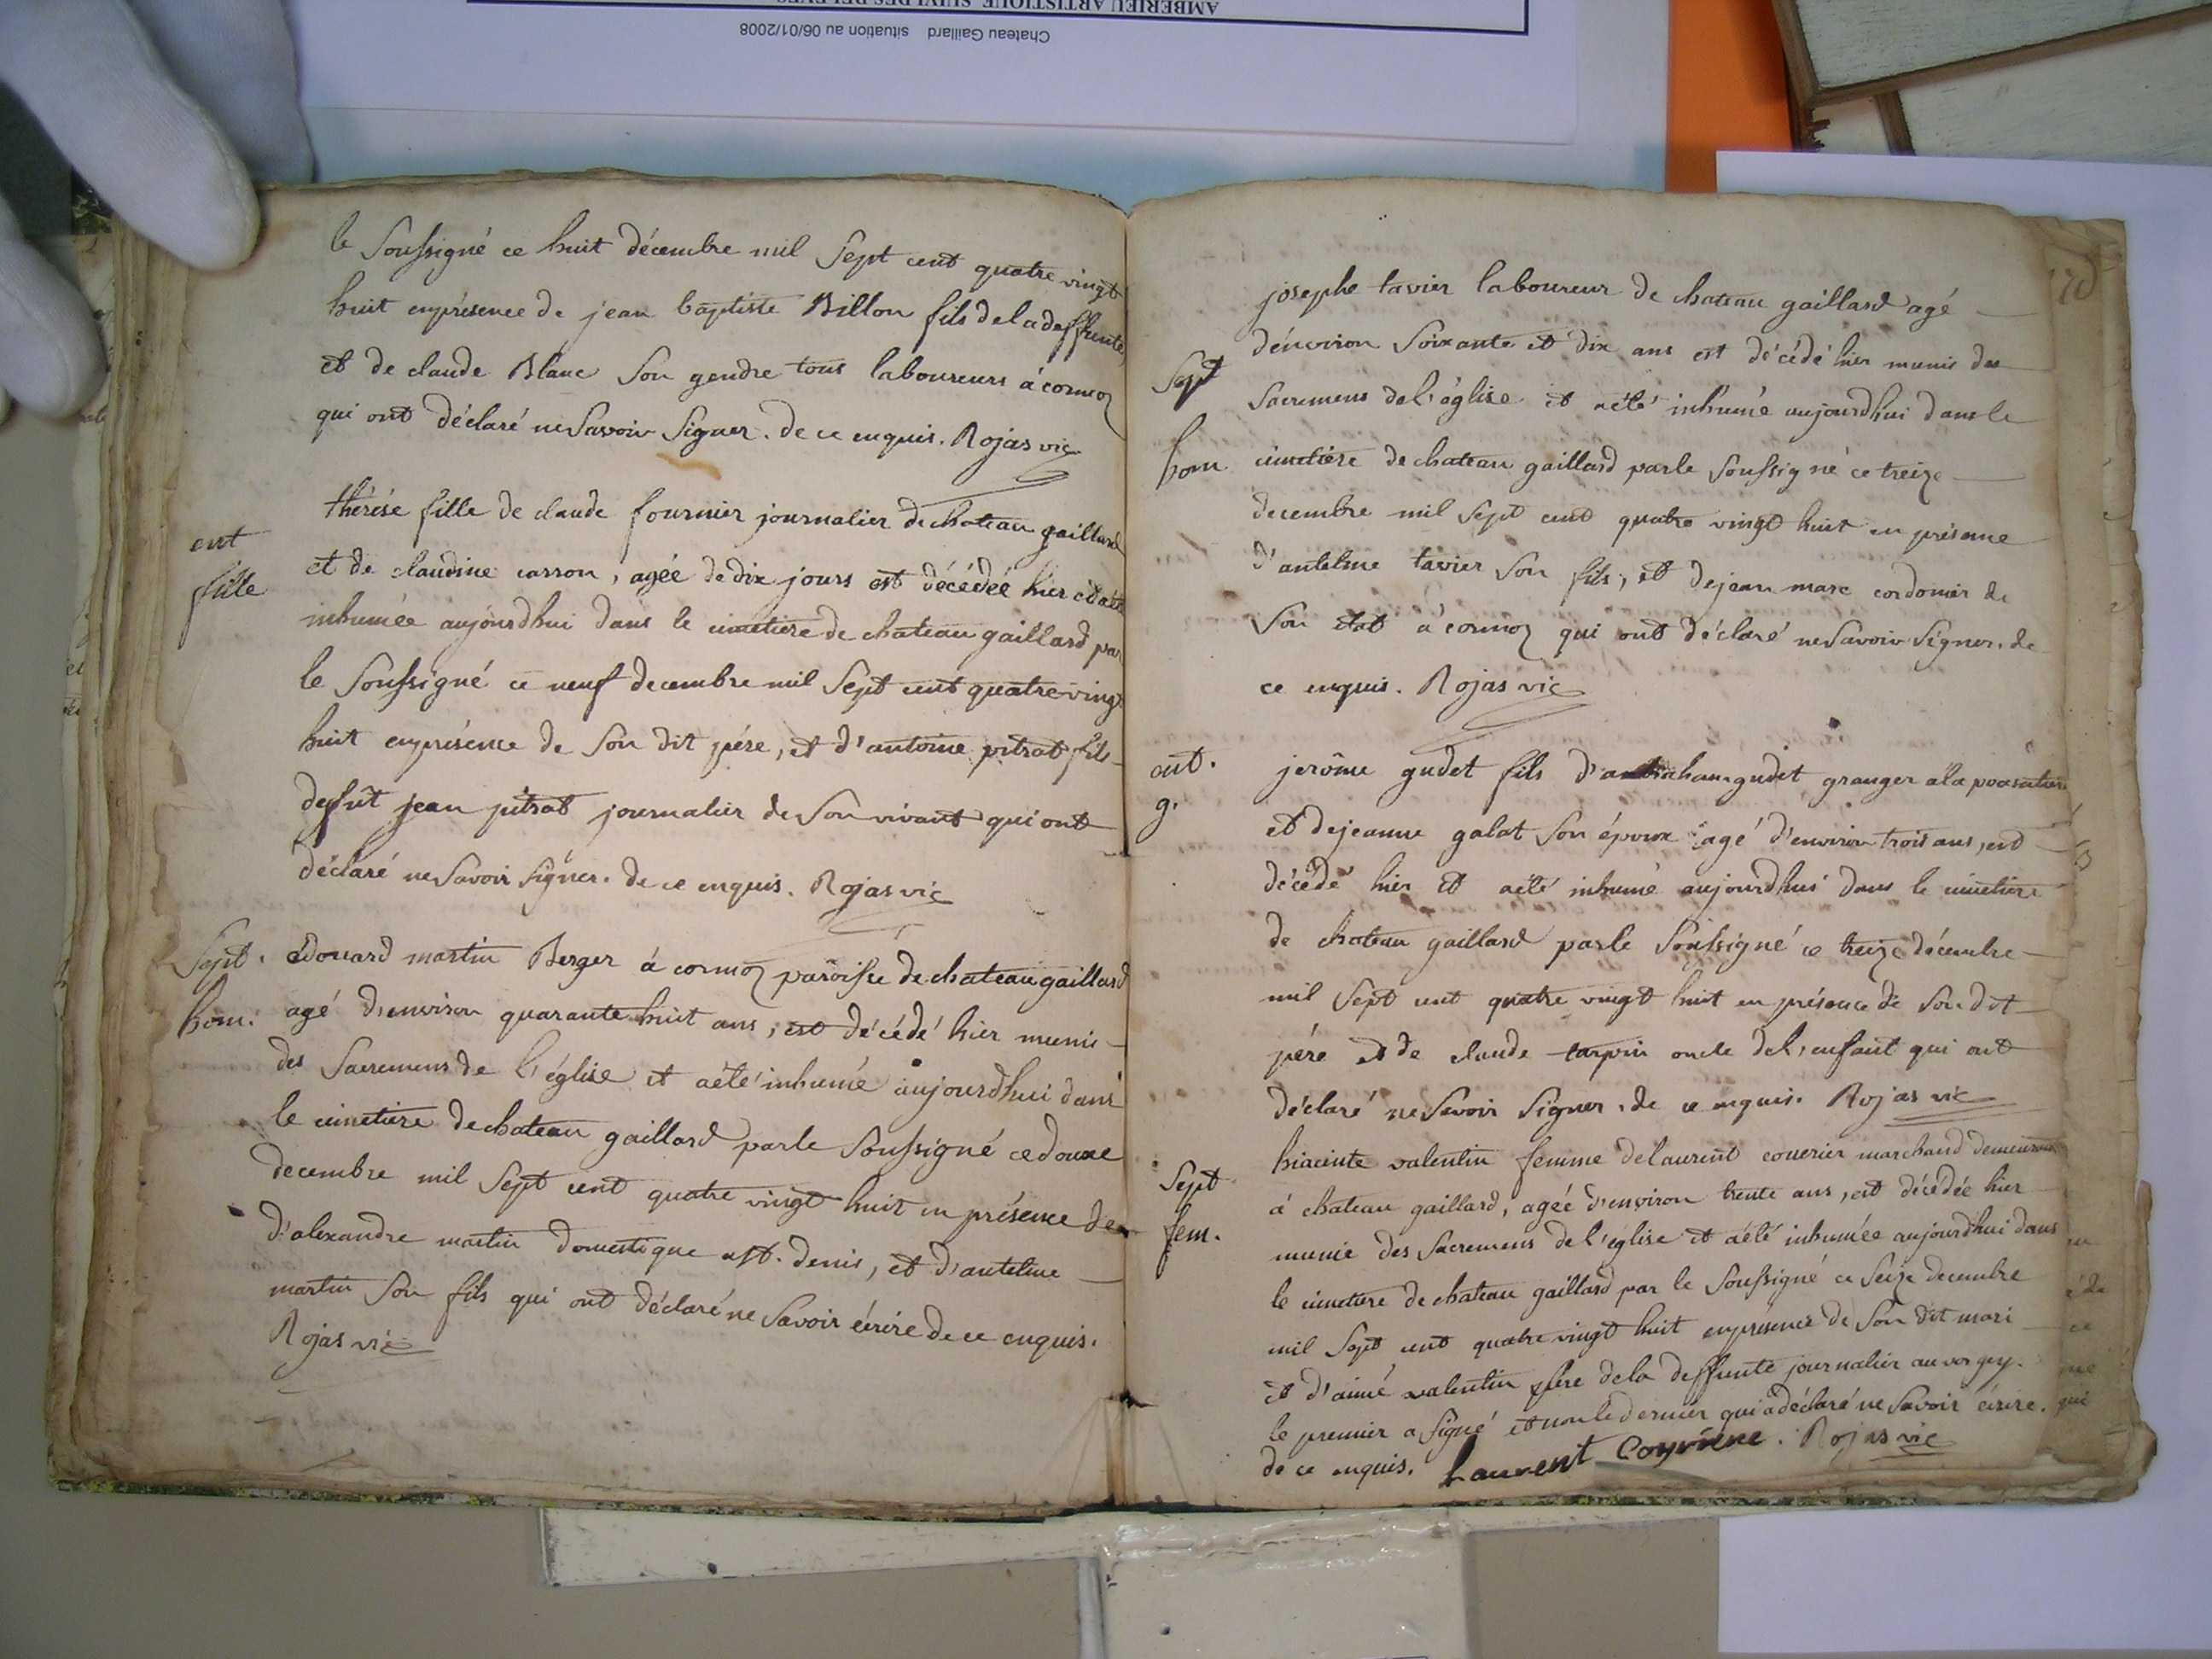 AMBERIEU ARTISTIQUE SUIVI DES RELEVES
Chateau Gaillard situation au 06/01/2008
le Soussigné ce huit décembre mil Sept cent quatre vingt
huit enprésence de jean baptiste Billon fils deladeffunte,
et de claude Blanc Son gendre tous laboureurs à cormoz
qui ont déclaré neSavoir Signer. de ce enquis. Rojas vic
ent
fille
thérèse fille de claude fournier journalier de chateau gaillard
et de claudine carron, agée de dix jours est décédée hier et a été
inhumée aujourdhui dans le cimetiere de chateau gaillard par
le Soussigné ce neuf decembre mil Sept cent quatre vingt
huit enprésence de Son dit père, et d'antoine pitrat fils
deffût jean pitrat journalier de Son vivant qui ont
déclaré neSavoir Signer. de ce enquis. Rojas vic
Sept.
hom.
édouard martin Berger à cormoz paroisse de chateau gaillard
agé d'environ quarante huit ans, est décédé hier munis
des Sacremens de l'église et aété inhumé aujourdhui dans
le cimetiere de chateau gaillard parle Soussigné ce douze
decembre mil Sept cent quatre vingt huit en présence de
d'alexandre martin domestique a st. denis, et d'antelme
martin Son fils qui ont déclaré ne Savoir écrire de ce enquis.
Rojas vic
Sept
hom
josephe tavier laboureur de chateau gaillard agé
d'environ Soixante et dix ans est décédé hier munis des
Sacremens de l'église et aété inhumé aujourdhui dans le
cimetiere de chateau gaillard parle Soussigné ce treize
decembre mil Sept cent quatre vingt huit en présence
d'antelme tavier Son fils, et dejean marc cordonier de
Son état à cormoz qui ont déclaré neSavoir Signer. de
ce enquis. Rojas vic
ent.
g.
jerôme gudet fils d' gudet granger à la
et dejeanne galat Son épouse agé d'environ trois ans, est
décédé hier et aété inhumé aujourdhui dans le cimetiere
de chateau gaillard parle Soussigné ce treize décembre
mil Sept cent quatre vingt huit en présence de Son dit
père et de claude tarpin oncle del'enfant qui ont
déclaré neSavoir Signer. de ce enquis. Rojas vic
Sept
fem.
hiacinte valentin femme delaurent couerier marchand demeurant
à chateau gaillard, agée d'environ trente ans, est décédée hier
munie des Sacremens de l'église et aété inhumée aujourdhui dans
le cimetiere de chateau gaillard par le Soussigné ce Seize decembre
mil Sept cent quatre vingt huit enpresence de Son dit mari
et d'aimé valentin père dela deffunte journalier au vorgey.
le premier a Signé et non le dernier qui a déclaré ne Savoir écrire.
de ce enquis. Laurent . Rojas vic